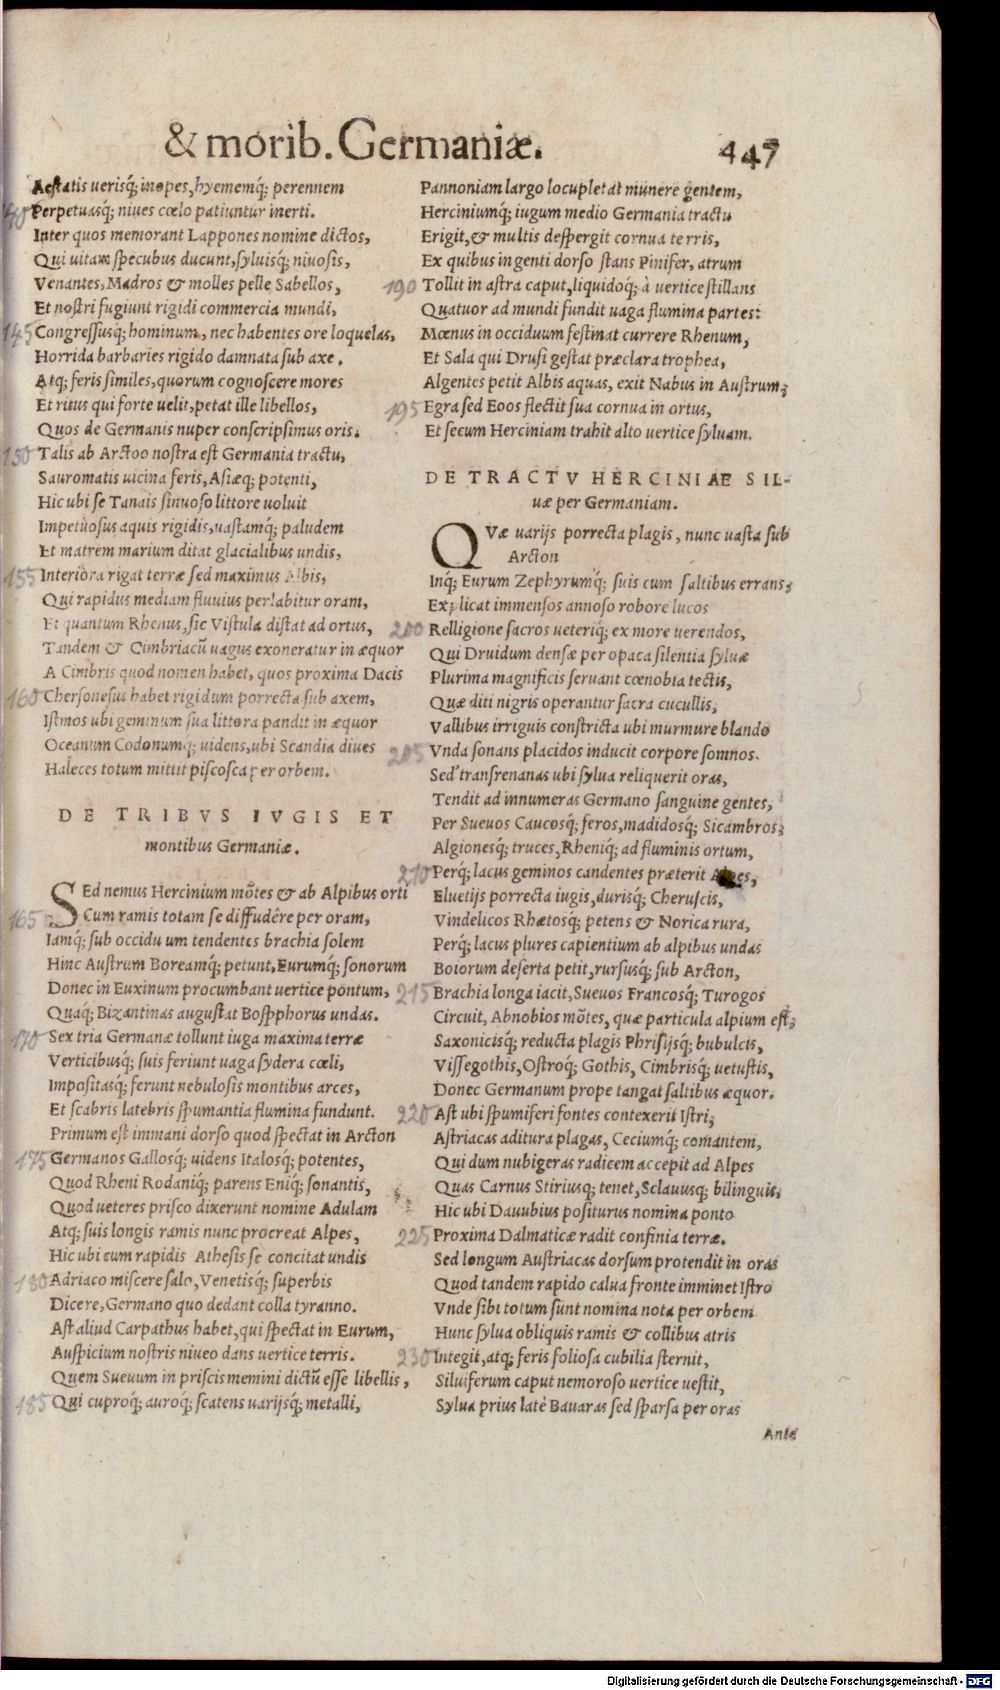 & morib. Germaniæ.
447
Aestatis uerisq́; inopes, hyememq́; perennem
140 Perpetuasq́; niues cœlo patiuntur inerti.
Inter quos memorant Lappones nomine dictos,
Qui uitam specubus ducunt, syluisq́; niuosis,
Venantes, Madros & molles pelle Sabellos,
Et nostri fugiunt rigidi commercia mundi,
145 Congressusq́; hominum, nec habentes ore loquelas,
Horrida barbaries rigido damnata sub axe.
Atq́; feris similes, quorum cognoscere mores
Et ritus qui forte uelit, petat ille libellos,
Quos de Germanis nuper conscripsimus oris.
150 Talis ab Arctoo nostra est Germania tractu,
Sauromatis uicina feris, Asiæq́; potenti,
Hic ubi se Tanais sinuoso littore uoluit
Impetuosus aquis rigidis, uastamq́; paludem
Et matrem marium ditat glacialibus undis,
155 Interiora rigat terræ sed maximus Albis,
Qui rapidus mediam fluuius perlabitur oram,
Et quantum Rhenus, sic Vistula distat ad ortus,
Tandem & Cimbriacũ uagus exoneratur in æquor
A Cimbris quod nomen habet, quos proxima Dacis
160 Chersonesus habet rigidum porrecta sub axem,
Istmos ubi geminum sua littora pandit in æquor
Oceanum Codonumq́; uidens, ubi Scandia diues
Haleces totum mittit piscosa per orbem.
DE TRIBVS IVGIS ET
montibus Germaniæ.
Sed nemus Hercinium mõtes & ab Alpibus orti
165 Cum ramis totam se diffudêre per oram,
Iamq́; sub occidu um tendentes brachia solem
Hinc Austrum Boreamq́; petunt, Eurumq́; sonorum
Donec in Euxinum procumbant vertice pontum,
Quaq́; Bizantinas augustat Bospphorus undas.
170 Sex tria Germanæ tollunt iuga maxima terræ
Verticibusq́; suis feriunt uaga sydera cœli,
Impositasq́; ferunt nebulosis montibus arces,
Et scabris latebris spumantia flumina fundunt.
Primum est immani dorso quod spectat in Arcton
175 Germanos Gallosq́; uidens Italosq́; potentes,
Quod Rheni Rodaniq́; parens Eniq́; sonantis,
Quod ueteres prisco dixerunt nomine Adulam
Atq́; suis longis ramis nunc procreat Alpes,
Hic ubi cum rapidis Athesis se concitat undis
180 Adriaco miscere salo, Venetisq́; superbis
Dicere, Germano quo dedant colla tyranno.
Ast aliud Carpathus habet, qui spectat in Eurum,
Auspicium nostris niueo dans uertice terris.
Quem Sueuum in priscis memini dictũ esse libellis,
185 Qui cuproq́; auroq́; scatens uarijsq́; metalli,
Pannoniam largo locupletat munere gentem,
Herciniumq́; iugum medio Germania tractu
Erigit, & multis despergit cornua terris,
Ex quibus ingenti dorso stans Pinifer, atrum
190 Tollit in astra caput, liquidoq́; à uertice stillans
Quatuor ad mundi fundit uaga flumina partes:
Mœnus in occiduum festinat currere Rhenum,
Et Sala qui Drusi gestat præclara trophea,
Algentes petit Albis aquas, exit Nabus in Austrum;
195 Egra sed Eoos flectit sua cornua in ortus,
Et secum Herciniam trahit alto uertice syluam.
DE TRACTV HERCINIAE SIL-
uæ per Germaniam.
QVæ uarijs porrecta plagis, nunc uasta sub
Arcton
Inq́; Eurum Zephyrumq́; suis cum saltibus errans;
Explicat immensos annoso robore lucos
200 Relligione sacros ueteriq́; ex more uerendos,
Qui Druidum densæ per opaca silentia syluæ
Plurima magnificis seruant cœnobia tectis,
Quæ diti nigris operantur sacra cucullis;
Vallibus irriguis constricta ubi murmure blando
205 Vnda sonans placidos inducit corpore somnos.
Sed transrenanas ubi sylua reliquerit oras,
Tendit ad innumeras Germano sanguine gentes,
Per Sueuos Caucosq́; feros, madidosq́; Sicambros;
Algionesq́; truces, Rheniq́; ad fluminis ortum,
210 Perq́; lacus geminos candentes præterit Alpes,
Eluetijs porrecta iugis, durisq́; Cheruscis,
Vindelicos Rhætosq́; petens & Norica rura,
Perq́; lacus plures capientium ab alpibus undas
Boiorum deserta petit, rursusq́; sub Arcton,
215 Brachia longa iacit, Sueuos Francosq́; Turogos
Circuit, Abnobios mõtes, quæ particula alpium est;
Saxonicisq́; reducta plagis Phrisijsq́; bubulcis,
Vissegothis, Ostroq́; Gothis, Cimbrisq́; uetustis,
Donec Germanum prope tangat saltibus æquor.
220 Ast ubi spumiferi fontes contexerit Istri;
Astriacas aditura plagas, Ceciumq́; comantem,
Qui dum nubigeras radicem accepit ad Alpes
Quas Carnus Stiriusq́; tenet, Sclauusq́; bilinguis;
Hic ubi Dauubius positurus nomina ponto
225 Proxima Dalmaticæ radit confinia terræ.
Sed longum Austriacas dorsum protendit in oras
Quod tandem rapido calua fronte imminet Istro
Vnde sibi totum sunt nomina nota per orbem
Hunc sylua obliquis ramis & collibus atris
230 Integit, atq́; feris foliosa cubilia sternit,
Siluiferum caput nemoroso uertice uestit,
Sylua prius latè Bauaras sed sparsa per oras
Ante
Digitalisierung gefördert durch die Deutsche Forschungsgemeinschaft - DFG